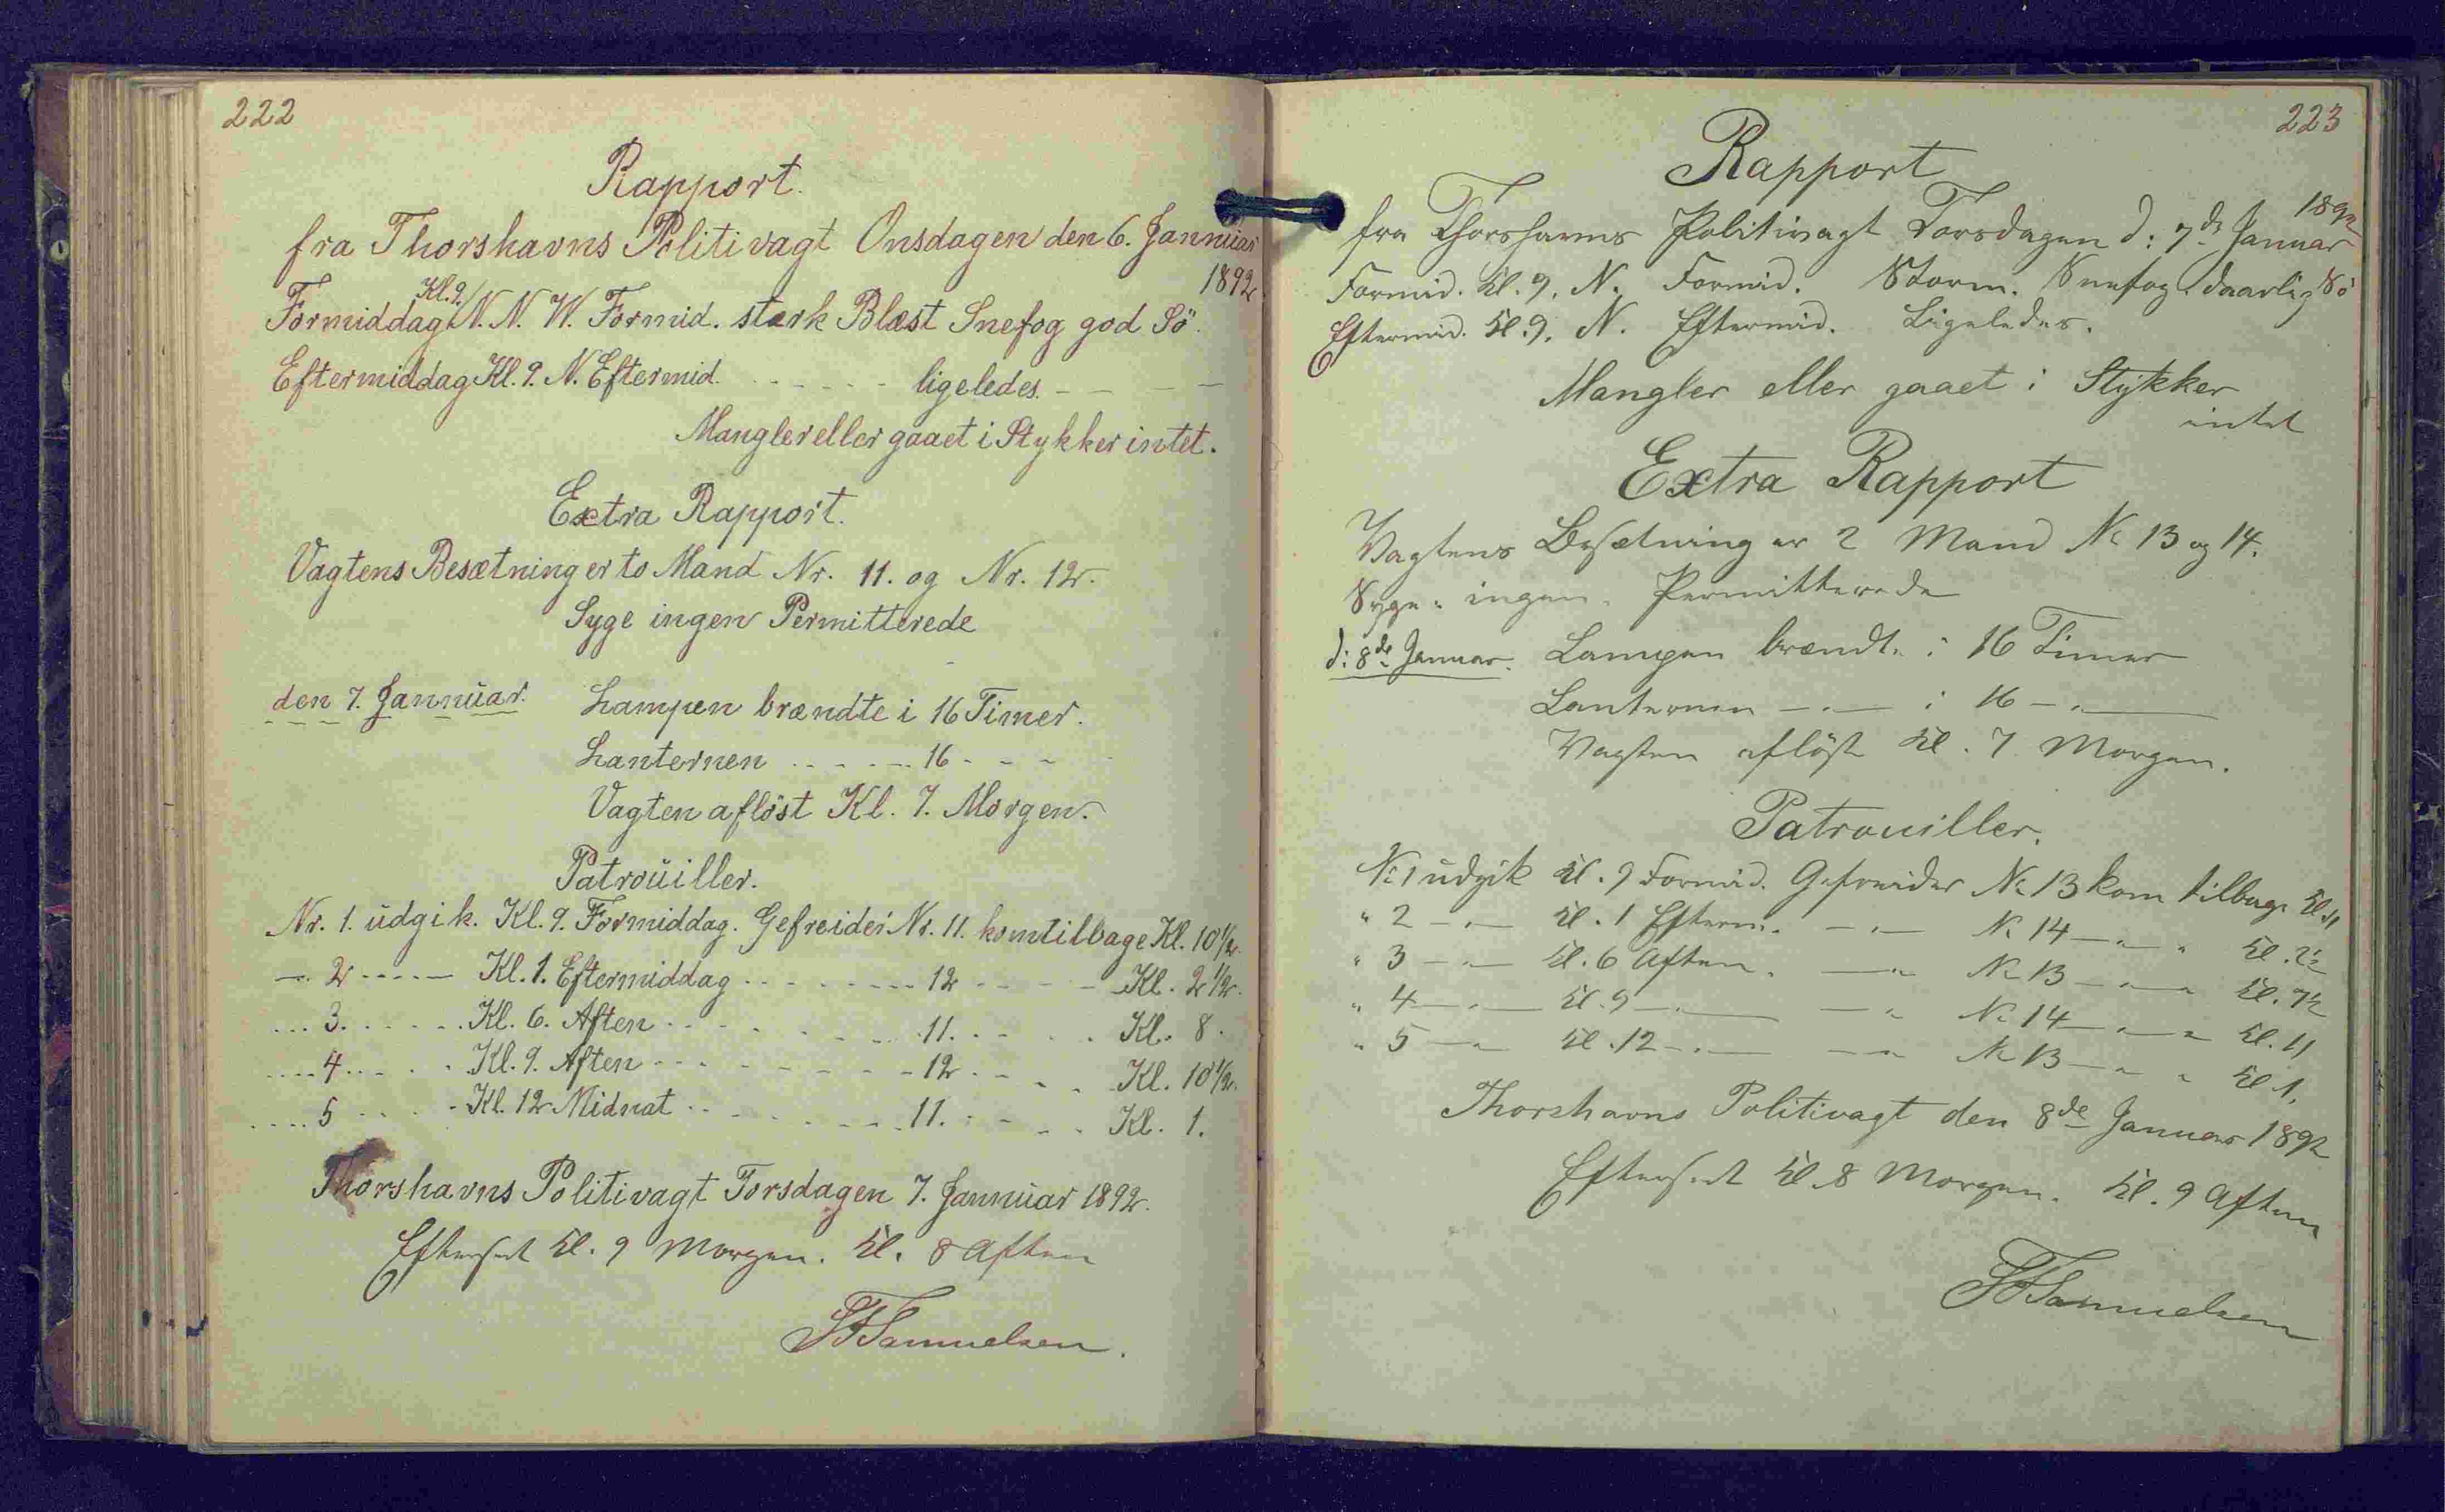 222
Rapport.
fra Thorshavns Politivagt Onsdagen den 6. Jannuar
1892.
Kl. 9.
Formiddag N. N. W. Formid. stærk Blæst Snefog god Sö.
Eftermiddag Kl. 9. N. Eftermid. - - - - - - ligeledes. - - - -
Mangler eller gaaet i Stykker intet.
Extra Rapport.
Vagtens Besætning er to Mand Nr. 11. og Nr. 12.
Syge ingen Permitterede
den 7. Jannuar. Lampen brændte i 16 Timer.
Lanternen - - - - - - 16 - - -
Vagten aflöst Kl. 7. Morgen.
Patrouiller.
Nr. 1. udgik. Kl. 9. Formiddag. Gefreider Nr. 11. kom tilbage Kl. 10 1/2.
- 2 - - - - - Kl. 1. Eftermiddag - - - - - - - - 12 - - - - - Kl. 2 1/2.
- - - 3. - - - - - Kl. 6. Aften - - - - - - - - 11. - - - - Kl. 8.
- - - - 4 - - - - - Kl. 9. Aften - - - - - - - - 12 - - - - Kl. 10 1/2.
- - - - 5 - - - - - Kl. 12 Midnat - - - - - - - - 11. - - - - Kl. 1.
Thorshavns Politivagt Torsdagen 7. Jannuar 1892.
Efterseet Kl. 9 Morgen. Kl. 8 Aften
Samuelsen.
223
Rapport
1892
fra Thorshavns Politivagt Torsdagen d: 7de Januar
Formid. Kl. 9. N. Formid. Storm. Snefog. daarlig Sö
Eftermid. Kl. 9. N. Eftermid. Ligeledes.
Mangler eller gaaet i Stykker
intet
Extra Rapport
Vagtens Besætning er 2 Mand No 13 og 14.
Syge " ingen. Permitterede
d: 8de Januar. Lampen brændte i 16 Timer
Lanternen - " - i 16 - " -
Vagten aflöst Kl. 7 Morgen.
Patrouiller.
No 1 udgik Kl. 9 Formid. Gefreider No 13 kom tilbage Kl. 11
" 2 - " - Kl. 1 Efterm. - " - No 14 - " - " Kl. 2½
" 3 - " - Kl. 6 Aften. - " No 13 - " - " Kl. 7½
" 4 - " - Kl. 9 - " - - " No 14 - " - " Kl. 11
" 5 - " Kl. 12 - " - - " No 13 - " " Kl. 1.
Thorshavns Politivagt den 8de Januar 1892
Efterseet Kl. 8 Morgen. Kl. 9 Aften
Samuelsen